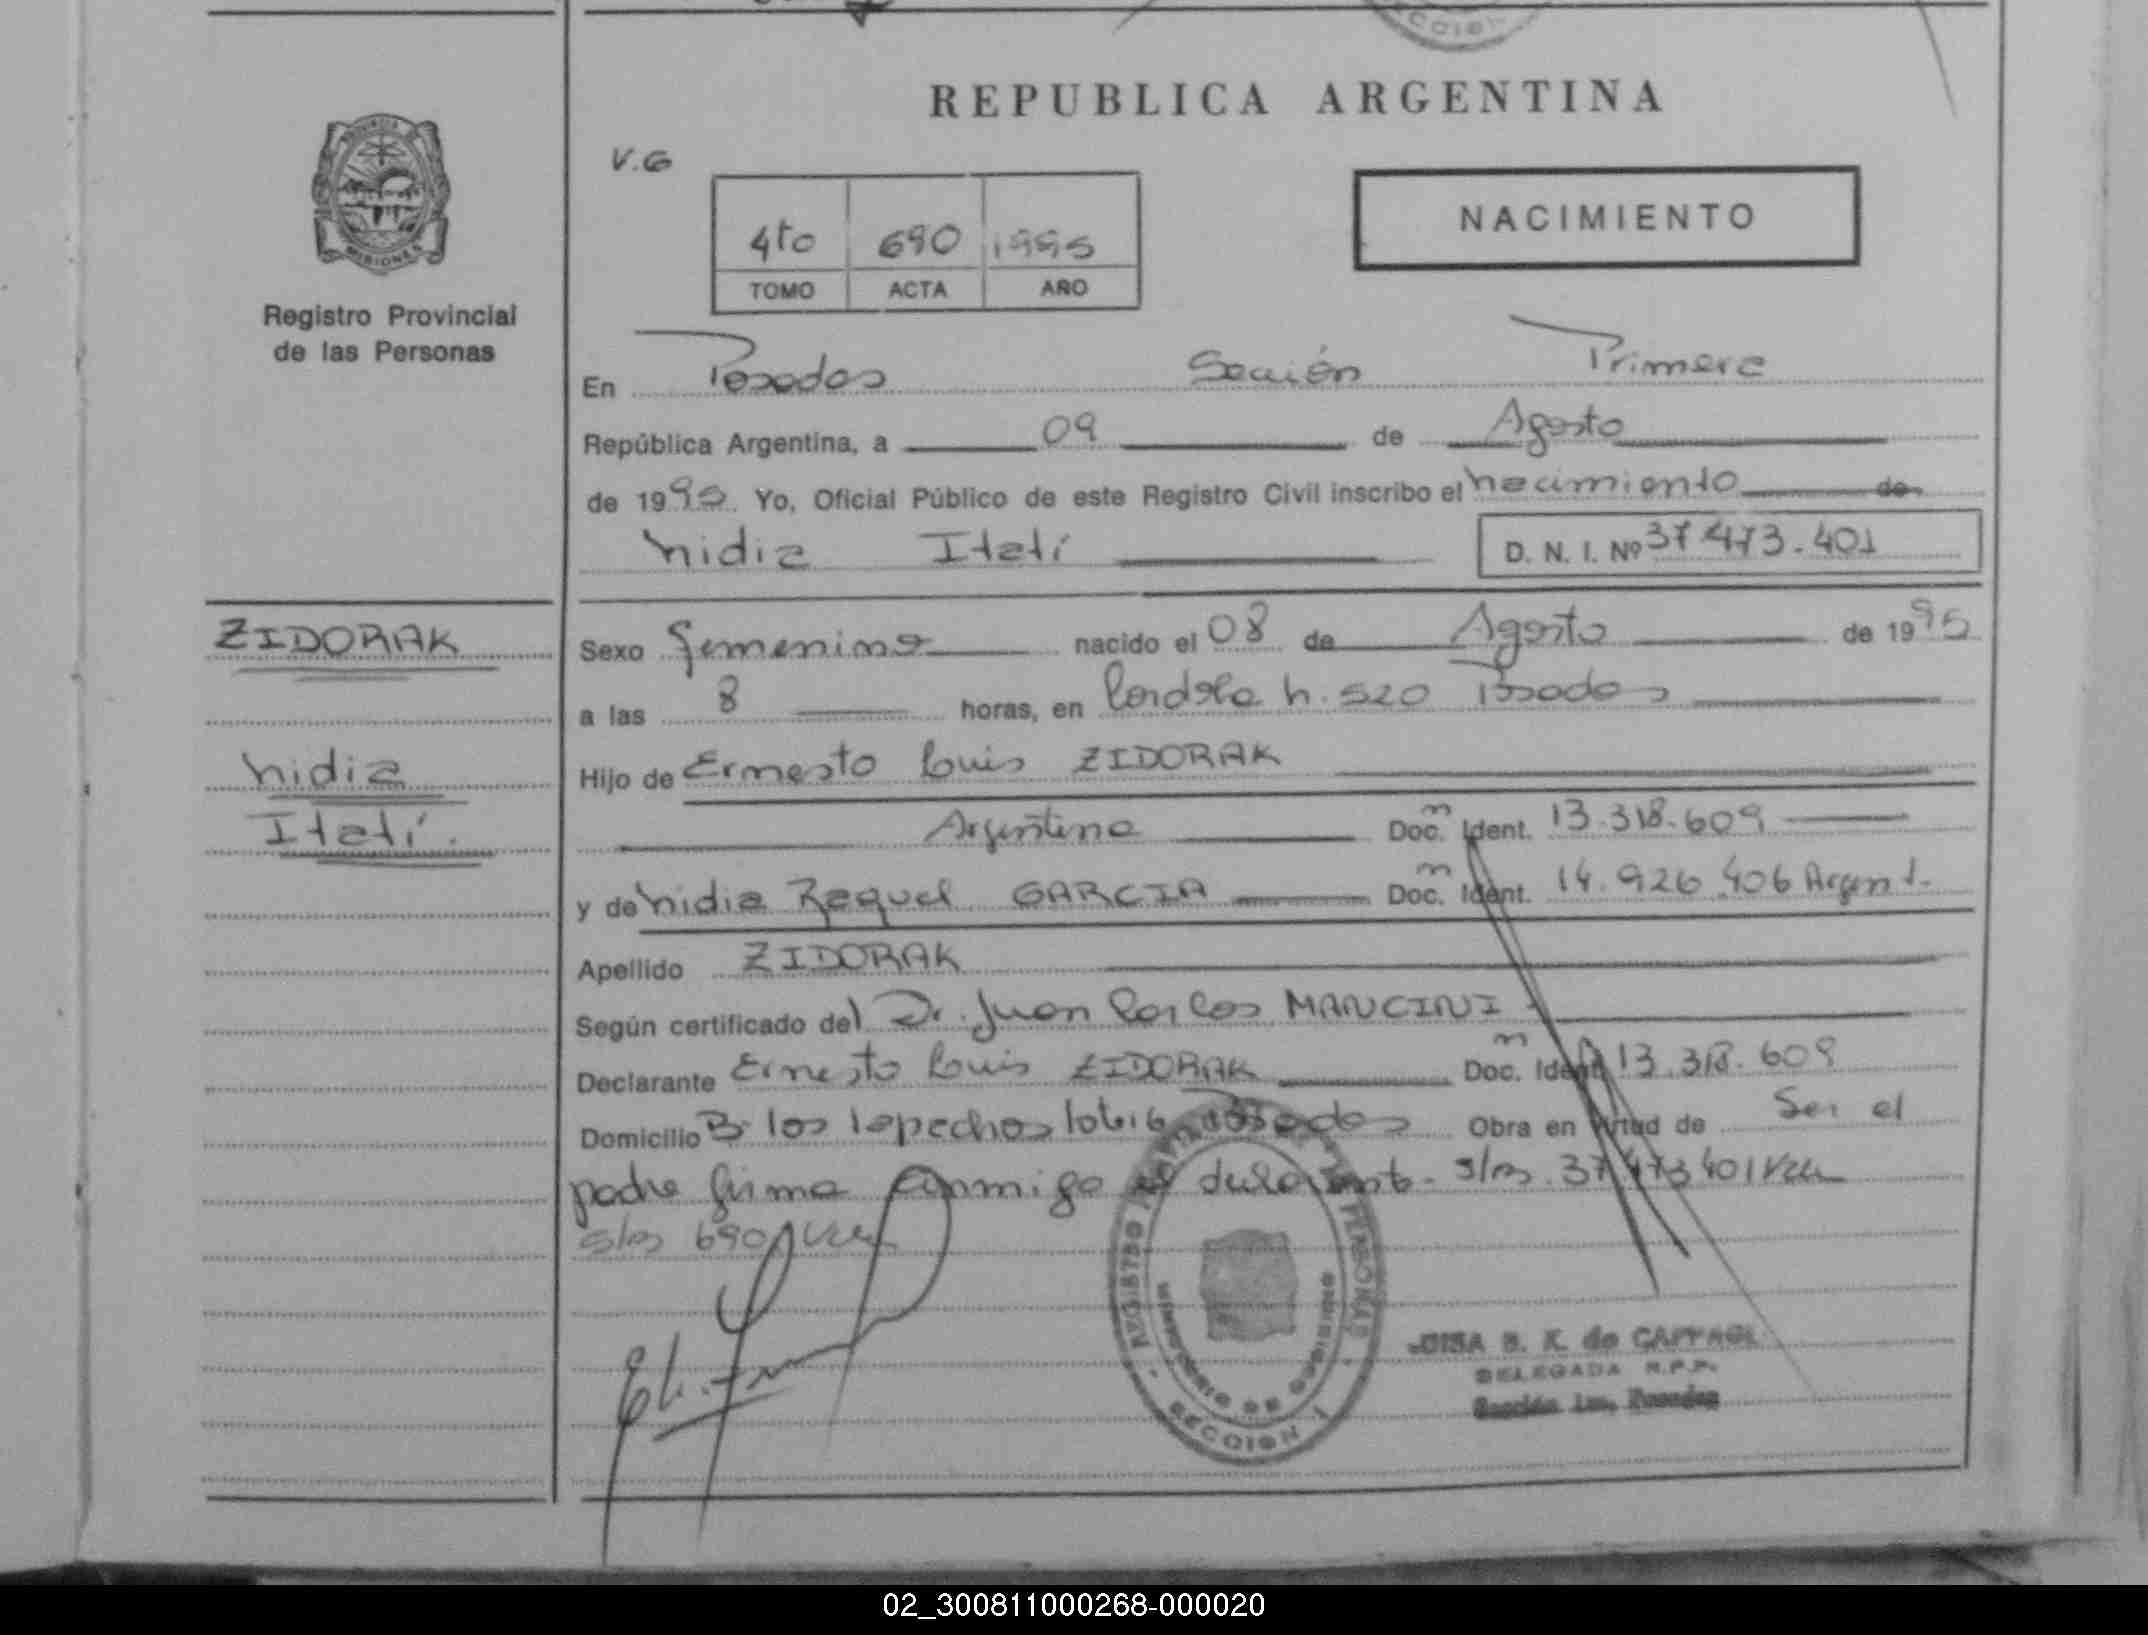 REPUBLICA ARGENTINA
V.G
NACIMIENTO
4to 690 1995
TOMO ACTA AÑO
PROVINCIA DE
MISIONES
Registro Provincial
de las Personas
En Posadas Sección Primera
República Argentina, a 09 de Agosto
de 1995. Yo, Oficial Público de este Registro Civil inscribo el nacimiento de
Nidia Itatí D. N. I. Nº 37.473.401
ZIDORAK
Sexo femenino nacido el 08 de Agosto de 1995
a las 8 horas, en Córdoba N. 520 Posadas
Nidia
Itatí.
Hijo de Ernesto Luis ZIDORAK
Argentino Doc. Ident. 13.318.609
y de Nidia Raquel GARCIA Doc. Ident. 14.926.406 Argent.
Apellido ZIDORAK
Según certificado del Dr. Juan Carlos MANCINI
Declarante Ernesto Luis ZIDORAK Doc. Ident. 13.318.609
Domicilio B. los lapachos Posadas Obra en virtud de Ser el
padre firma conmigo el declarante. s/r 37.473.401 Vale
s/r 690 Vale
REGISTRO DE LAS PERSONAS
MINISTERIO DE GOBIERNO
SECCION 1
B. K. de
DELEGADA R.P.P.
Sección 1ra. Posadas
02_300811000268-000020